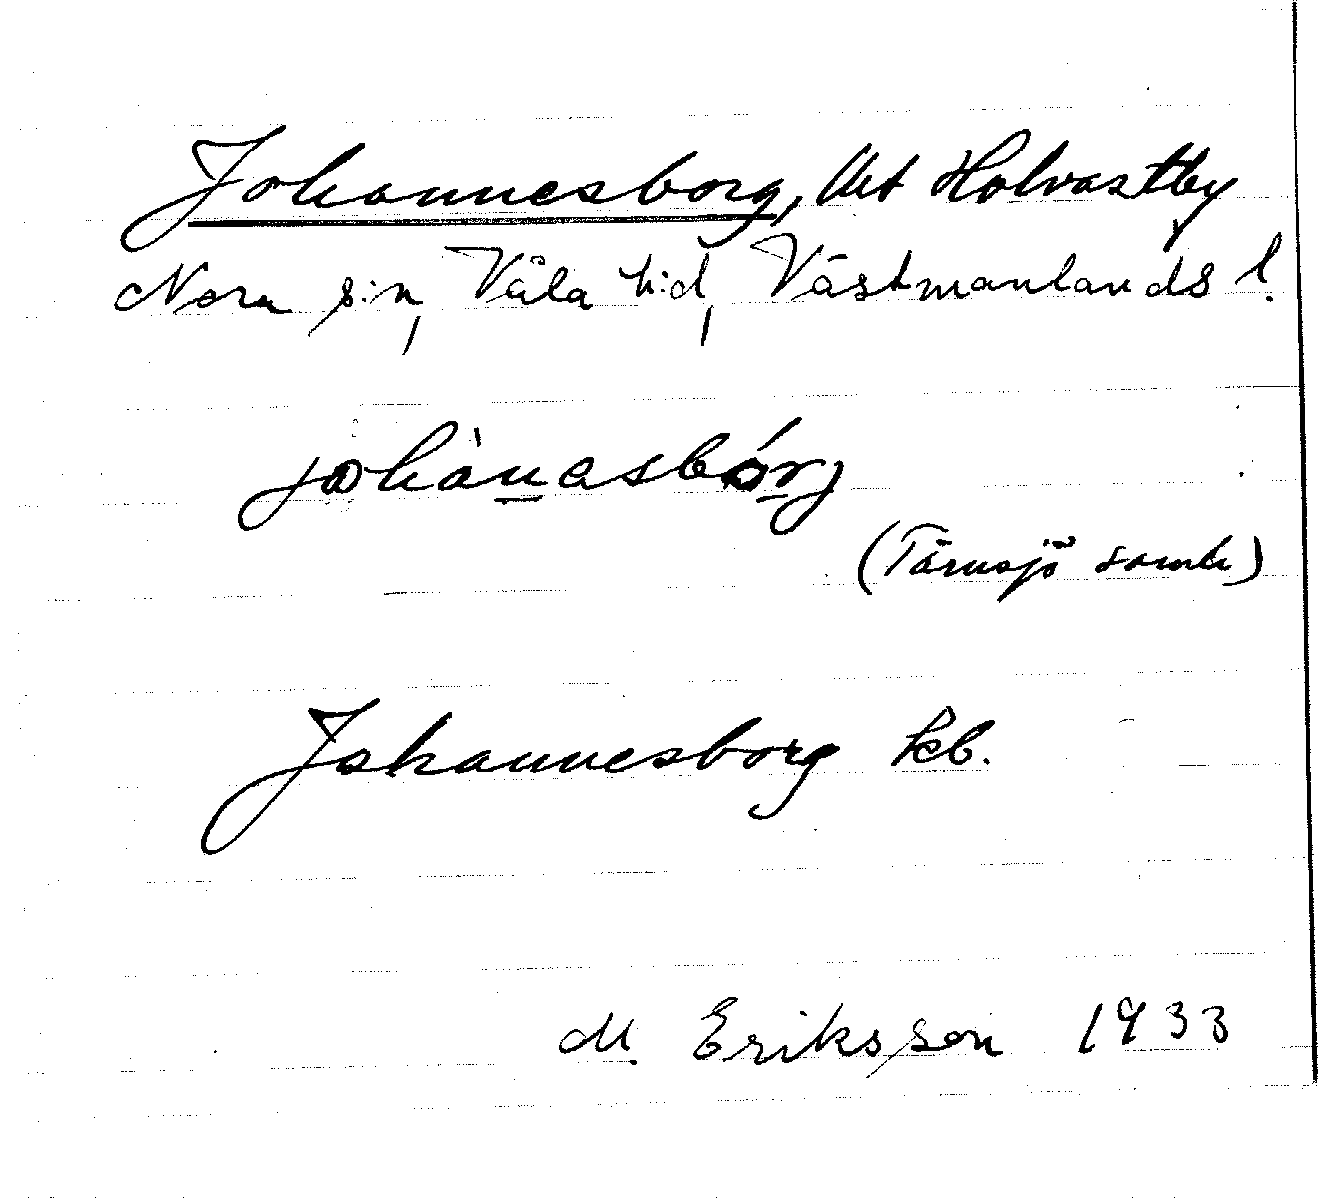 Johannesborg, Ut Holvastby
Nora s:n, Våla h:d, Västmanlands l.
johànasbórj
(Tärnsjö samh)
Johannesborg kb.
M. Eriksson 1933